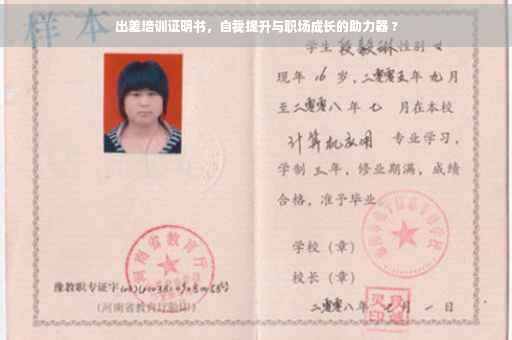 出差培训证明书，自我提升与职场成长的助力器？
样本
学生段毅琳性别女
现年16岁,二零零五年九月
至二零零八年七月在本校
计算机应用专业学习,
学制三年,修业期满,成绩
合格,准予毕业
学校（章）
校长（章）
二零零八年七月一日
河南省教育厅
豫教职专证字
（河南省教育厅验印）